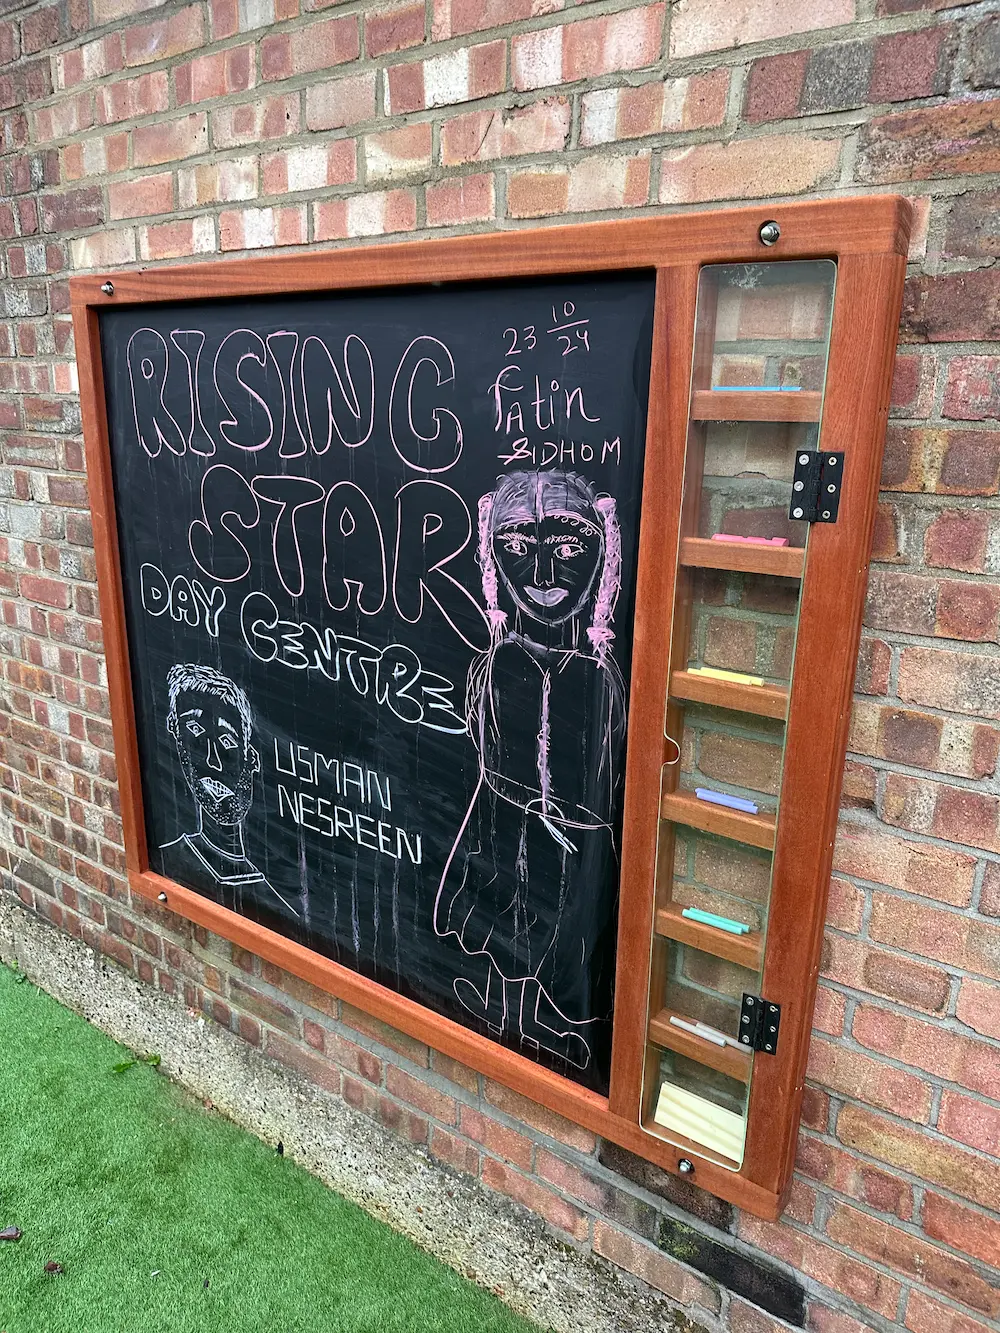 RISING
STAR
DAY CENTRE
23 10/24
Fatin
SIDHOM
USMAN
NESREEN